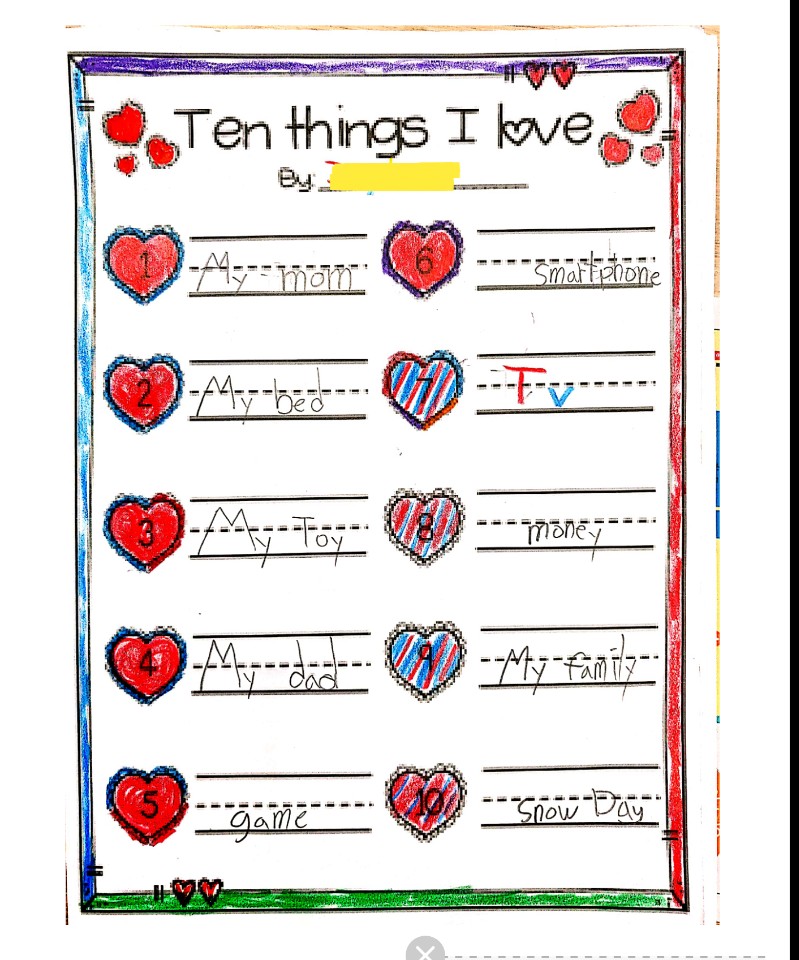 Ten things I love
By:
1 My mom
2 My bed
3 My Toy
4 My dad
5 game
6 smartphone
7 Tv
8 money
9 My family
10 Snow Day